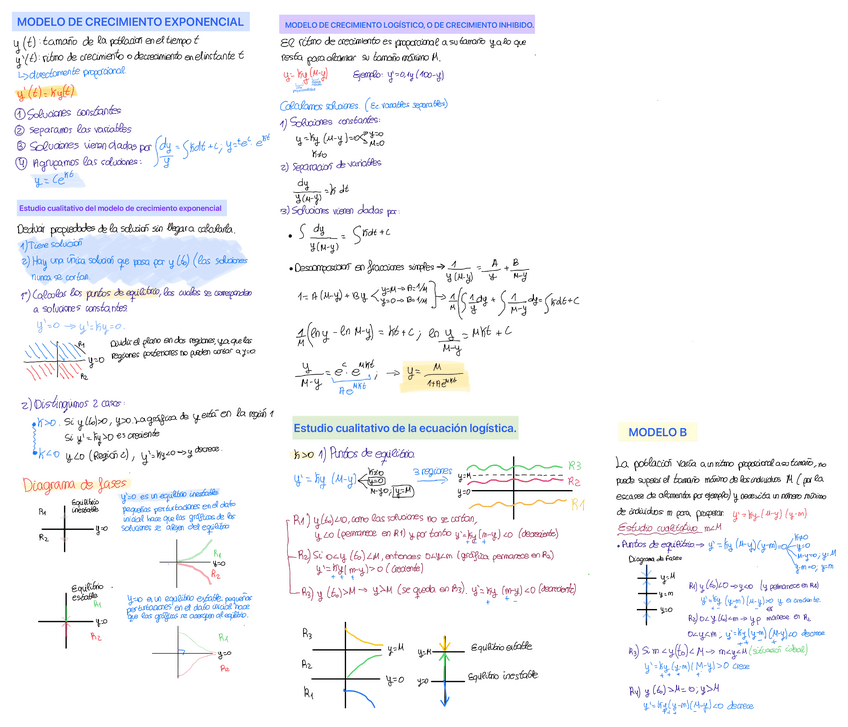 MODELO DE CRECIMIENTO EXPONENCIAL
y(t): tamaño de la población en el tiempo t
y'(t): ritmo de crecimiento o decrecimiento en el instante t
↳ directamente proporcional
y'(t) = Ky(t)
① Soluciones constantes
② separamos las variables
③ Soluciones vienen dadas por ∫dy/y = ∫Kdt + C; y = ±e^c · e^Kt
④ Agrupamos las soluciones:
y = Ce^Kt
Estudio cualitativo del modelo de crecimiento exponencial
Deducir propiedades de la solución sin llegar a calcularla.
1) Tiene solución
2) Hay una única solución que pasa por y(t₀) (las soluciones
nunca se cortan
1º) Calcular los puntos de equilibrio, los cuales se corresponden
a soluciones constantes.
y'=0 → y'=Ky=0.
R1
y=0
R2
Dividir el plano en dos regiones, ya que las
Regiones posteriores no pueden cortar a y=0.
2) Distinguimos 2 casos:
K>0. Si y(t₀)>0, y>0. La gráfica de y está en la región 1
Si y'=Ky>0 es creciente
K<0 y<0 (Región 2), y'=Ky<0 → y decrece.
Diagrama de fases
Equilibrio
inestable
R1
y=0
R2
y'=0 es un equilibrio inestable
pequeñas perturbaciones en el dato
inicial hace que las gráficas de las
soluciones se alejen del equilibrio
R1
R2
Equilibrio
estable
R1
y=0
R2
y=0 es un equilibrio estable, pequeñas
perturbaciones en el dato inicial hace
que las gráficas se acerquen al equilibrio.
R1
y=0
R2
MODELO DE CRECIMIENTO LOGÍSTICO, O DE CRECIMIENTO INHIBIDO.
El ritmo de crecimiento es proporcional a su tamaño y a lo que
resta para alcanzar su tamaño máximo M.
y' = Ky(M-y) Ejemplo: y'=0,1y(100-y)
Calculamos soluciones. (Ec variables separables)
1) Soluciones constantes:
y'=Ky(M-y)=0 y=0
M=0
K≠0
2) Separación de variables
dy/y(M-y) = K dt
3) Soluciones vienen dadas por:
• ∫ dy/y(M-y) = ∫Kdt + C
• Descomposición en fracciones simples → 1/y(M-y) = A/y + B/M-y
1 = A(M-y) + By y=M → A=1/M
y=0 → B=1/M → 1/M(∫1/y dy + ∫1/M-y dy = ∫Kdt + C
1/M(ln y - ln M-y) = Kt + C; ln y/M-y = MKt + C
y/M-y = e^c · e^MKt; → y = M/1+Ae^MKt
Ae^MKt
Estudio cualitativo de la ecuación logística.
K>0 1) Puntos de equilibrio
y'=Ky(M-y) K≠0
y=0
M-y=0, y=M
3 regiones
y=M
y=0
R3
R2
R1
R1) y(t₀)<0, como las soluciones no se cortan,
y<0 (permanece en R1) y por tanto y'=Ky(m-y)<0 (decreciente)
R2) Si 0<y(t₀)<M, entonces 0<y<m (gráfica permanece en R2)
y'=Ky(m-y)>0 (creciente)
R3) y(t₀)>M → y>M R1 (se queda en R3). y'=Ky(m-y)<0 (decreciente)
R3
R2
R1
y=M
y=0
y=M
y=0
Equilibrio estable
Equilibrio inestable
MODELO B
La población varía a un ritmo proporcional a su tamaño, no
puede superar el tamaño máximo de los individuos M (por la
escasez de alimentos por ejemplo) y necesita un número máximo
de individuos m para prosperar y'=Ky(M-y)(y-m)
Estudio cualitativo m<M
• Puntos de equilibrio → y'=Ky(M-y)(y-m)=0 K≠0
y=0
M-y=0; y=M
y-m=0; y=m
Diagrama de Fases
y=M
y=m
y=0
R1) y(t₀)<0 → y<0 (y permanece en R1)
y'=Ky(y-m)(M-y)>0 y es creciente
R2) 0<y(t₀)<m → y p manece en R2
0<y<m, y'=Ky(y-m)(M-y)<0 decrece
R3) Si m<y(t₀)<M → m<y<M (situación ideal)
y'=Ky(y-m)(M-y)>0 crece
R4) y(t₀)>M=0; y>M
y'=Ky(y-m)(M-y)<0 decrece